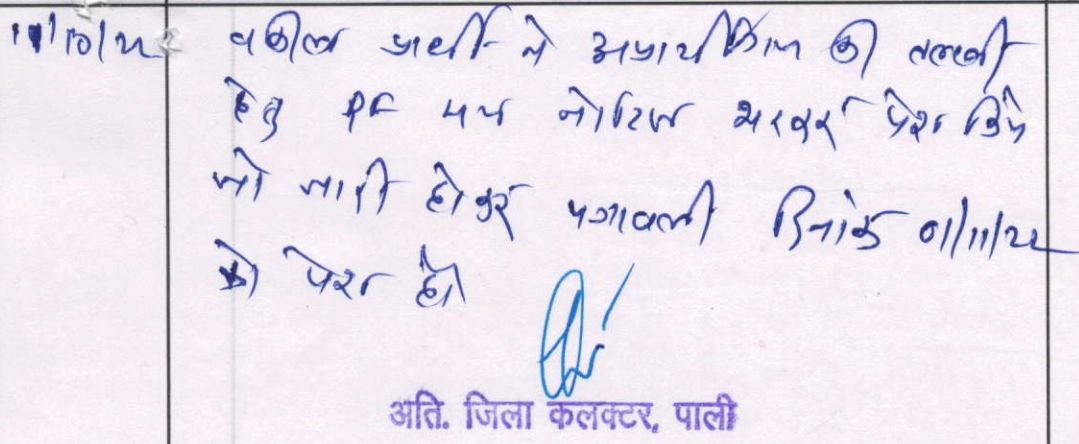 11/10/22 वकील प्रार्थी ने अप्रार्थीगण की तलबी
हेतु PF मय नोटिस भरकर पेश किये
जो जारी होकर पत्रावली दिनांक 01/11/22
को पेश हो
अति. जिला कलक्टर, पाली